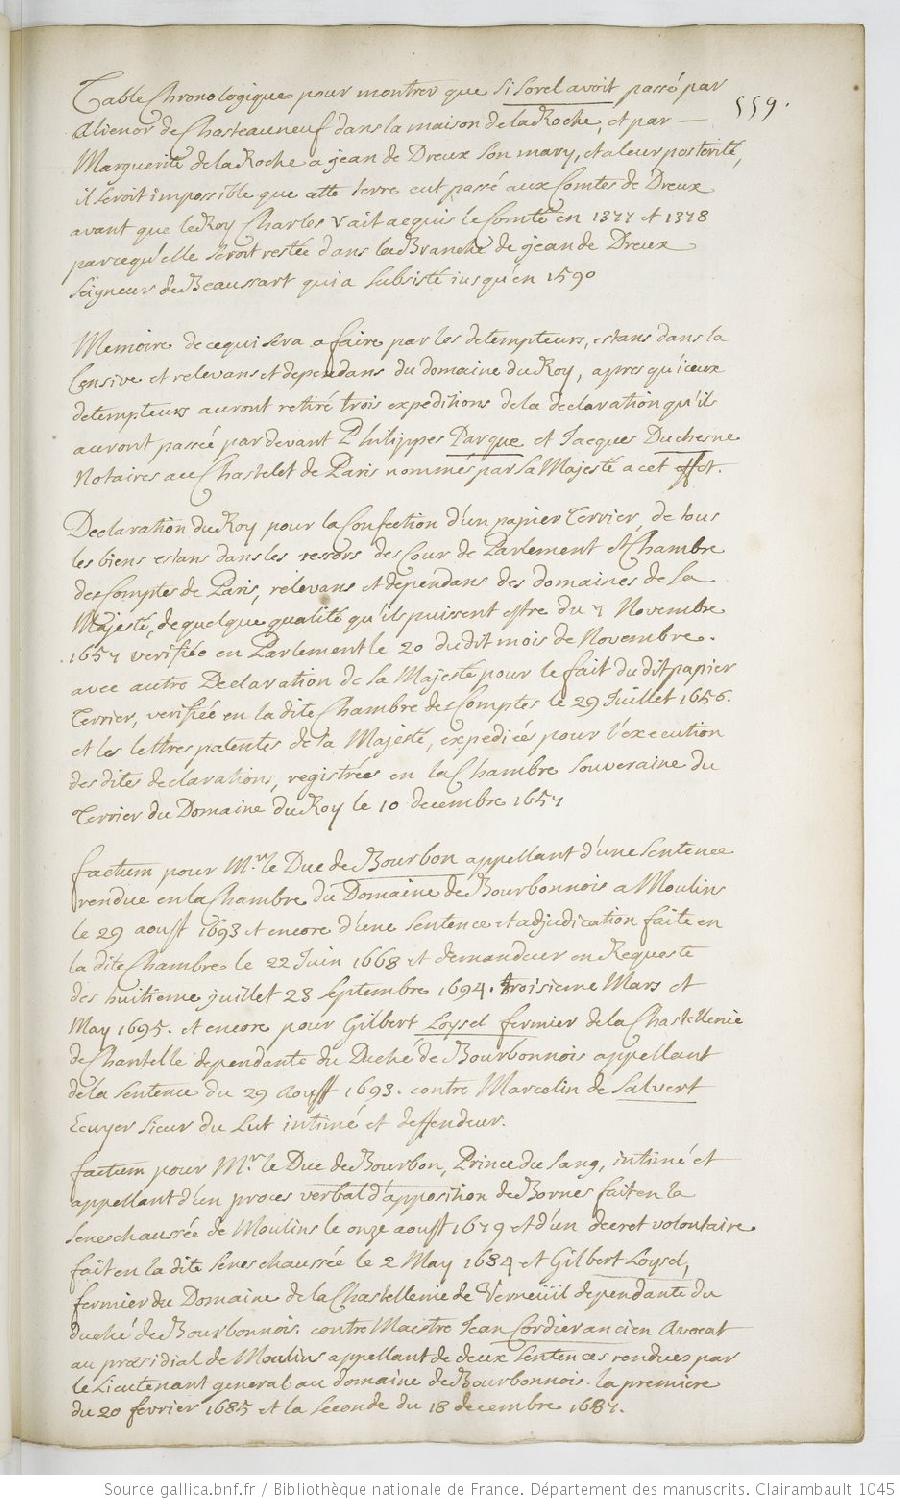 Table Chronologique pour montrer que si Sorel avoit passé par
559.
Alienor de Chasteauneuf dans la maison de la Roche, et par —
Marguerite de la Roche a jean de Dreux son mary, et a leur posterité,
il seroit impossible que cette terre eut passé aux Comtes de Dreux
avant que le Roy Charles V ait acquis le Comté en 1377 et 1378
parcequ'elle seroit restée dans la Branche de jean de Dreux
seigneur de Beaussart qui a subsisté jusqu'en 1590
Memoire de ce qui sera a faire par les detempteurs, estans dans la
Censive et relevans et dependans du domaine du Roy, apres qu'iceux
detempteurs auront retiré trois expeditions de la declaration qu'ils
auront passée pardevant Philippes Parque et Jacques Duchesne
Notaires au Chastelet de Paris nommés par sa Majesté a cet effet.
Declaration du Roy pour la Confection d'un papier Terrier, de tous
les biens estans dans les ressors des Cour de Parlement et Chambre
des Comptes de Paris, relevans et dependans des domaines de Sa
Majesté, de quelque qualité qu'ils puissent estre du 7 Novembre
1657 verifiée en Parlement le 20 dudit mois de Novembre.
avec autre Declaration de sa Majesté pour le fait dudit papier
Terrier, verifiée en la dite Chambre des Comptes le 29 Juillet 1656.
et les lettres patentes de sa Majesté, expediées pour l'execution
des dites declarations, registrées en la Chambre Souveraine du
Terrier du Domaine du Roy le 10 decembre 1657
factum pour Mr. le Duc de Bourbon appellant d'une sentence
rendue en la Chambre du Domaine de Bourbonnois a Moulins
le 29 aoust 1693 et encore d'une sentence et adjudication faite en
la dite Chambre le 22 Juin 1668 et demandeur en Requeste
des huitieme juillet 28 septembre 1694. troisieme Mars et
May 1695. et encore pour Gilbert Loysel fermier de la Chastellenie
de Chantelle dependante du Duché de Bourbonnois appellant
de la sentence du 29 aoust 1693. contre Marcolin de Salvert
Ecuyer sieur du Lut intimé et deffendeur.
factum pour Mr. le Duc de Bourbon, Prince du Sang, intimé et
appellant d'un proces verbal d'apposition de Bornes fait en la
Seneschaussée de Moulins le onze aoust 1679 et d'un decret volontaire
fait en la dite Seneschaussée le 2 May 1684 et Gilbert Loysel,
fermier du Domaine de la Chastellenie de Verneüil dependante du
duché de Bourbonnois. contre Maistre Jean Cordier ancien Avocat
au præsidial de Moulins appellant de deux sentences rendues par
le Lieutenant general au domaine de Bourbonnois. la premiere
du 20 fevrier 1685 et la seconde du 18 decembre 1687.
Source gallica.bnf.fr / Bibliothèque nationale de France. Département des manuscrits. Clairambault 1045